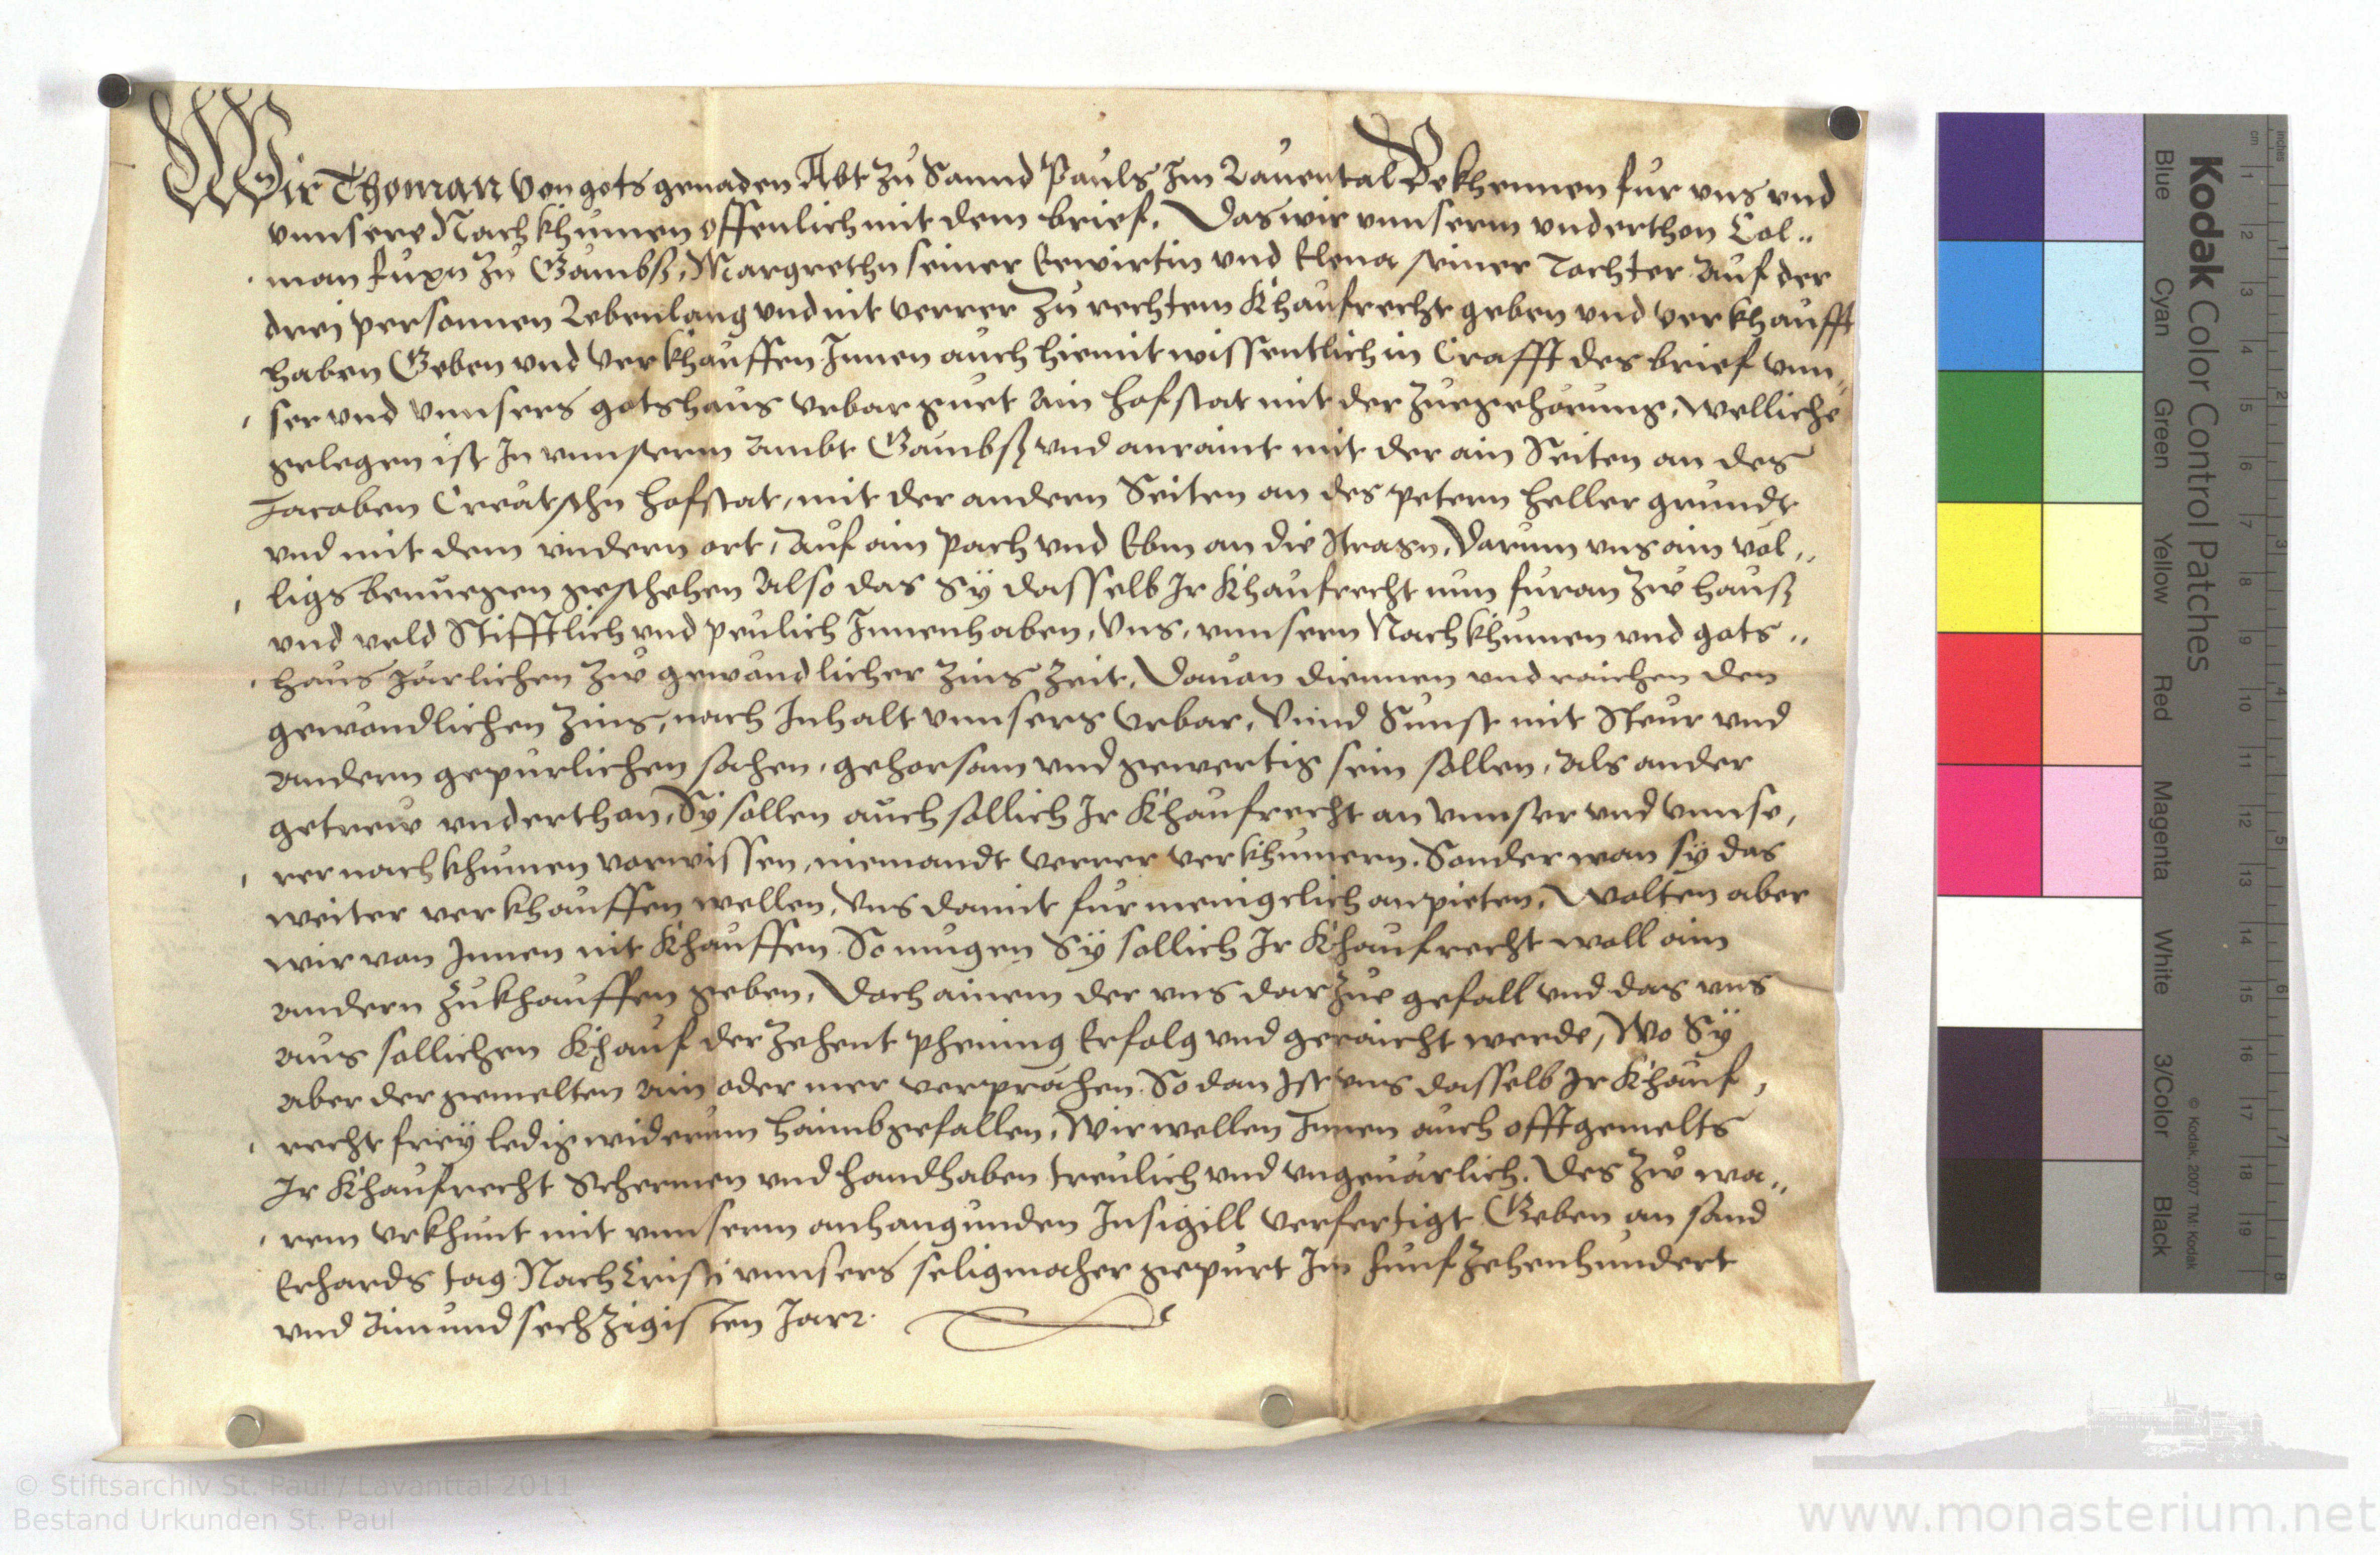 Wir Thoman von gots genaden Abt zu Sannd Pauls Im Lauental Bekhennen fur vns vnd
vnnsere Nachkhumen offenlich mit dem brief. Das wir vnnserm vnderthon Col„
man fuxn zu Gambß, Margrethn seiner Eewirtin vnd Elena seiner Tochter auf der
drej personnen Lebenlang vnd nit verrer zu rechtem Khaufrecht geben vnd verkhaufft
haben Geben vnd verkhauffen Innen auch hiemit wissentlich in Crafft des brief vnn„
ser vnd vnnsers gotshaus vrbarguet ain hofstat mit der zuegehorung, welliche
gelegen ist In vnnserm ambt Gambß vnd anraint mit der ain Seiten an des
Jacoben hofstat, mit der andern Seiten an des petern heller grundt
vnd mit dem vndern ort, auf ain pach vnd Ebm an die strasn, Darum vns ain vol„
ligs benuegen geschehen also das Sÿ dasselb Ir Khaufrecht nun furan zw hauß
vnd veld Stifftlich vnd peulich Innenhaben, Vns, vnnsern Nachkhumen vnd gots„
haus jarlichen zw gewondlicher zins zeit, Dauon diennen vnd raichen den
gewondlichen zins, nach Inhalt vnnsers Vrbar, Vnnd Sunst mit Steur vnd
andern gepurlichen sachen, gehorsam vnd gewertig sein sollen, als ander
getrew vnderthon, Sÿ sollen auch sollich Ir Khaufrecht an vnnser vnd vnnse„
rer nachkhumen vorwissen, niemandt verrer verkhumern. Sonder wan sÿ das
weiter verkhauffen wellen, vns damit fur menigclich anpieten, Wolten aber
wir von Innen nit Khauffen So mugen Sÿ sollich Ir Khaufrecht woll ain
andern zukhauffen geben, Doch ainem der vns darzue gefall vnd das vns
aus sollichen Khauf der zehent phening Erfolg vnd geraicht werde, Wo Sÿ
aber der gemelten ain oder mer verprachen So dan Ist vns dasselb Ir Khauf„
recht freÿ ledig widerum haimbgefallen, Wir wellen Innen auch offtgemelts
Ir Khaufrecht Schermen vnd handhaben treulich vnd vngeuarlich. Des zw wa„
rem vrkhunt mit vnnserm anhangunden Insigill verfertigt Geben an sand
Erhards tag Nach Cristi vnnsers seligmacher gepurt Im funfzehenhundert
vnd ainundsechzigisten Jar.
Kodak Color Control Patches
Blue Cyan Green Yellow Red Magenta White 3/Color Black
© Kodak, 2007 TM: Kodak
cm 1 2 3 4 5 6 7 8 9 10 11 12 13 14 15 16 17 18 19
inches 1 2 3 4 5 6 7 8
© Stiftsarchiv St. Paul / Lavanttal 2011
Bestand Urkunden St. Paul
www.monasterium.net